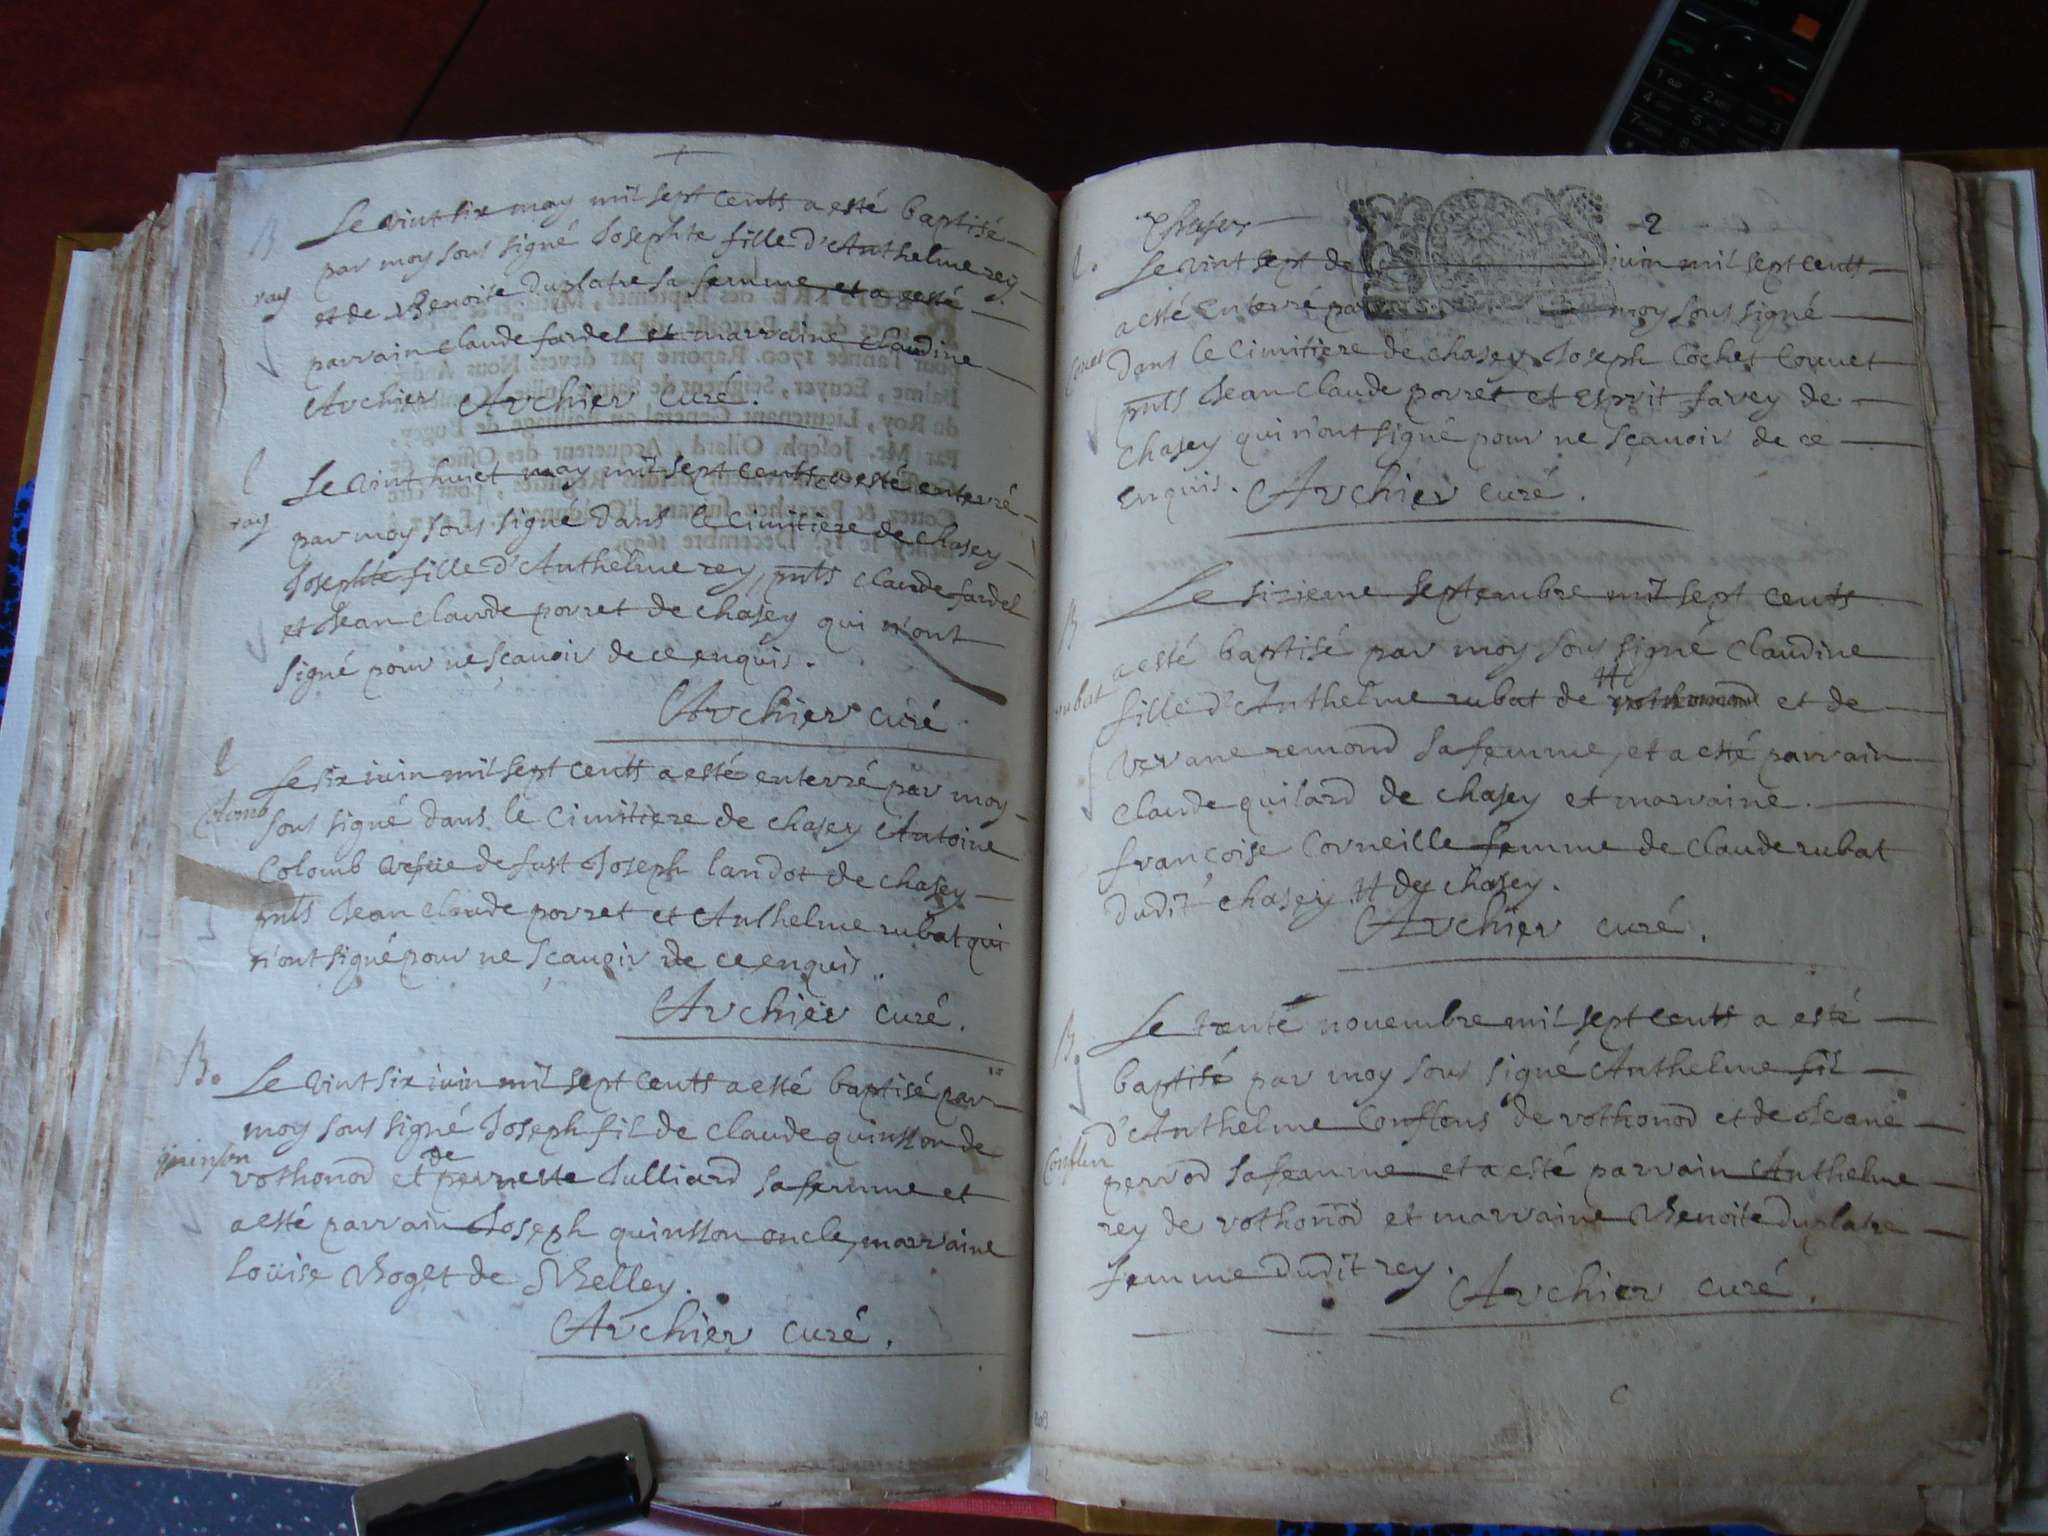 B
Le vint six may mil sept cents a esté baptisé
par moy sous signé Josephte fille d'Anthelme rey
rey
et de Benoite Duplatre sa femme et a esté
parrain claude fardel et marraine claudine
Archier Archier curé.
Le vint huict may mil sept cents a esté enterré
rey
par moy sous signé dans le cimitiere de chasey
Josephte fille d'Anthelme rey, pnts claude fardel
et Jean claude porret de chasey qui n'ont
signé pour ne sçauoir de ce enquis.
Archier curé
Le six iuin mil sept cents a esté enterré par moy
Colomb
sous signé dans le cimitiere de chasey Antoine
Colomb vefue de fust Joseph landot de chasey
pnts Jean claude porret et Anthelme rubat qui
n'ont signé pour ne sçauoir de ce enquis.
Archier curé.
B.
Le vint six iuin mil sept cents a esté baptisé par
moy sous signé Joseph fil de claude quinsson de
quinson
vothonod et de pernette Julliard sa femme et
a esté parrain Joseph quinsson oncle, marraine
Loüise Roget de Belley.
Archier curé.
Chasey 2
Le vint sept de iuin mil sept cents
a esté enterré par moy sous signé
dans le cimitiere de chasey Joseph Cochet Couuet
pnts Jean claude porret et Esprit favey de
chasey qui n'ont signé pour ne sçauoir de ce
enquis. Archier curé.
B
Le sixieme septembre mil sept cents
a esté baptisé par moy sous signé Claudine
rubat
fille d'Anthelme rubat de # vothonod et de
Verane remond sa femme, et a esté parrain
claude quilard de chasey et marraine.
françoise Corneille femme de claude rubat
dudit chasey # de chasey.
Archier curé.
B.
Le trente nouembre mil sept cents a esté
baptisé par moy sous signé Anthelme fil
d'Anthelme Conflens de vothonod et de Jeane
Conflen
perrod sa femme et a esté parrain Anthelme
rey de vothonod et marraine Benoite duplatre
femme dudit rey.
Archier curé.